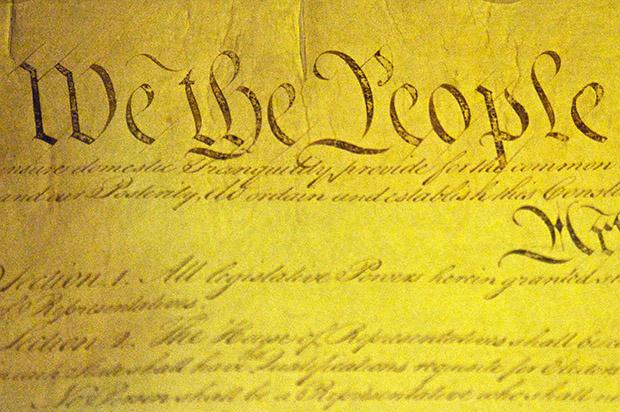 We the People
insure domestic Tranquility, provide for the common
and our Posterity, do ordain and establish this Consti
Section. 1. All legislative Powers herein granted sh
of Representatives.
Section. 2. The House of Representatives shall be co
in each State shall have Qualifications requisite for Electors
No Person shall be a Representative who shall not